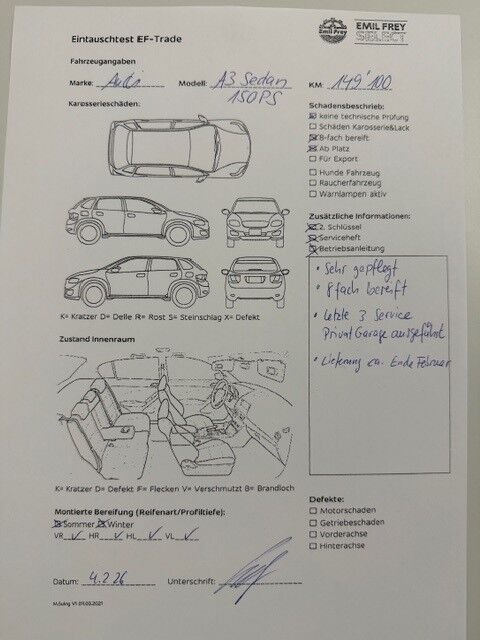 Eintauschtest EF-Trade
Emil Frey
EMIL FREY
SELECT
Fahrzeugangaben
Marke: Audi Modell: A3 Sedan KM: 149'100
150PS
Karosserieschäden:
Schadensbeschrieb:
keine technische Prüfung
Schäden Karosserie&Lack
8-fach bereift
Ab Platz
Für Export
Hunde Fahrzeug
Raucherfahrzeug
Warnlampen aktiv
Zusätzliche Informationen:
2. Schlüssel
Serviceheft
Betriebsanleitung
• Sehr gepflegt
• 8fach bereift
• Letzte 3 Service
Privat Garage ausgeführt
• Lieferung ca. Ende Februar
K= Kratzer D= Delle R= Rost S= Steinschlag X= Defekt
Zustand Innenraum
K= Kratzer D= Defekt F= Flecken V= Verschmutzt B= Brandloch
Montierte Bereifung (Reifenart/Profiltiefe):
Sommer Winter
VR ✓ HR ✓ HL ✓ VL ✓
Defekte:
Motorschaden
Getriebeschaden
Vorderachse
Hinterachse
Datum: 4.2.26 Unterschrift: